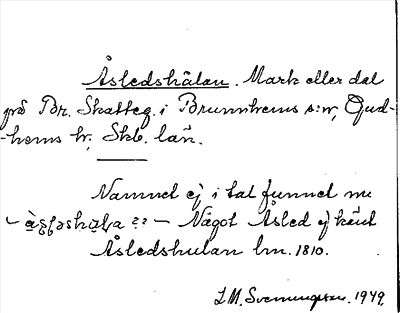 Åsledshålan. Mark eller dal
på Br. Skatteg. i Brunnhems s:n, Gud-
hems hr, Skb. län.
Namnet ej i tal funnet nu
Något Åsled ej känt
Åsledshulan lm. 1810.
I.M. Svenungsson. 1949.